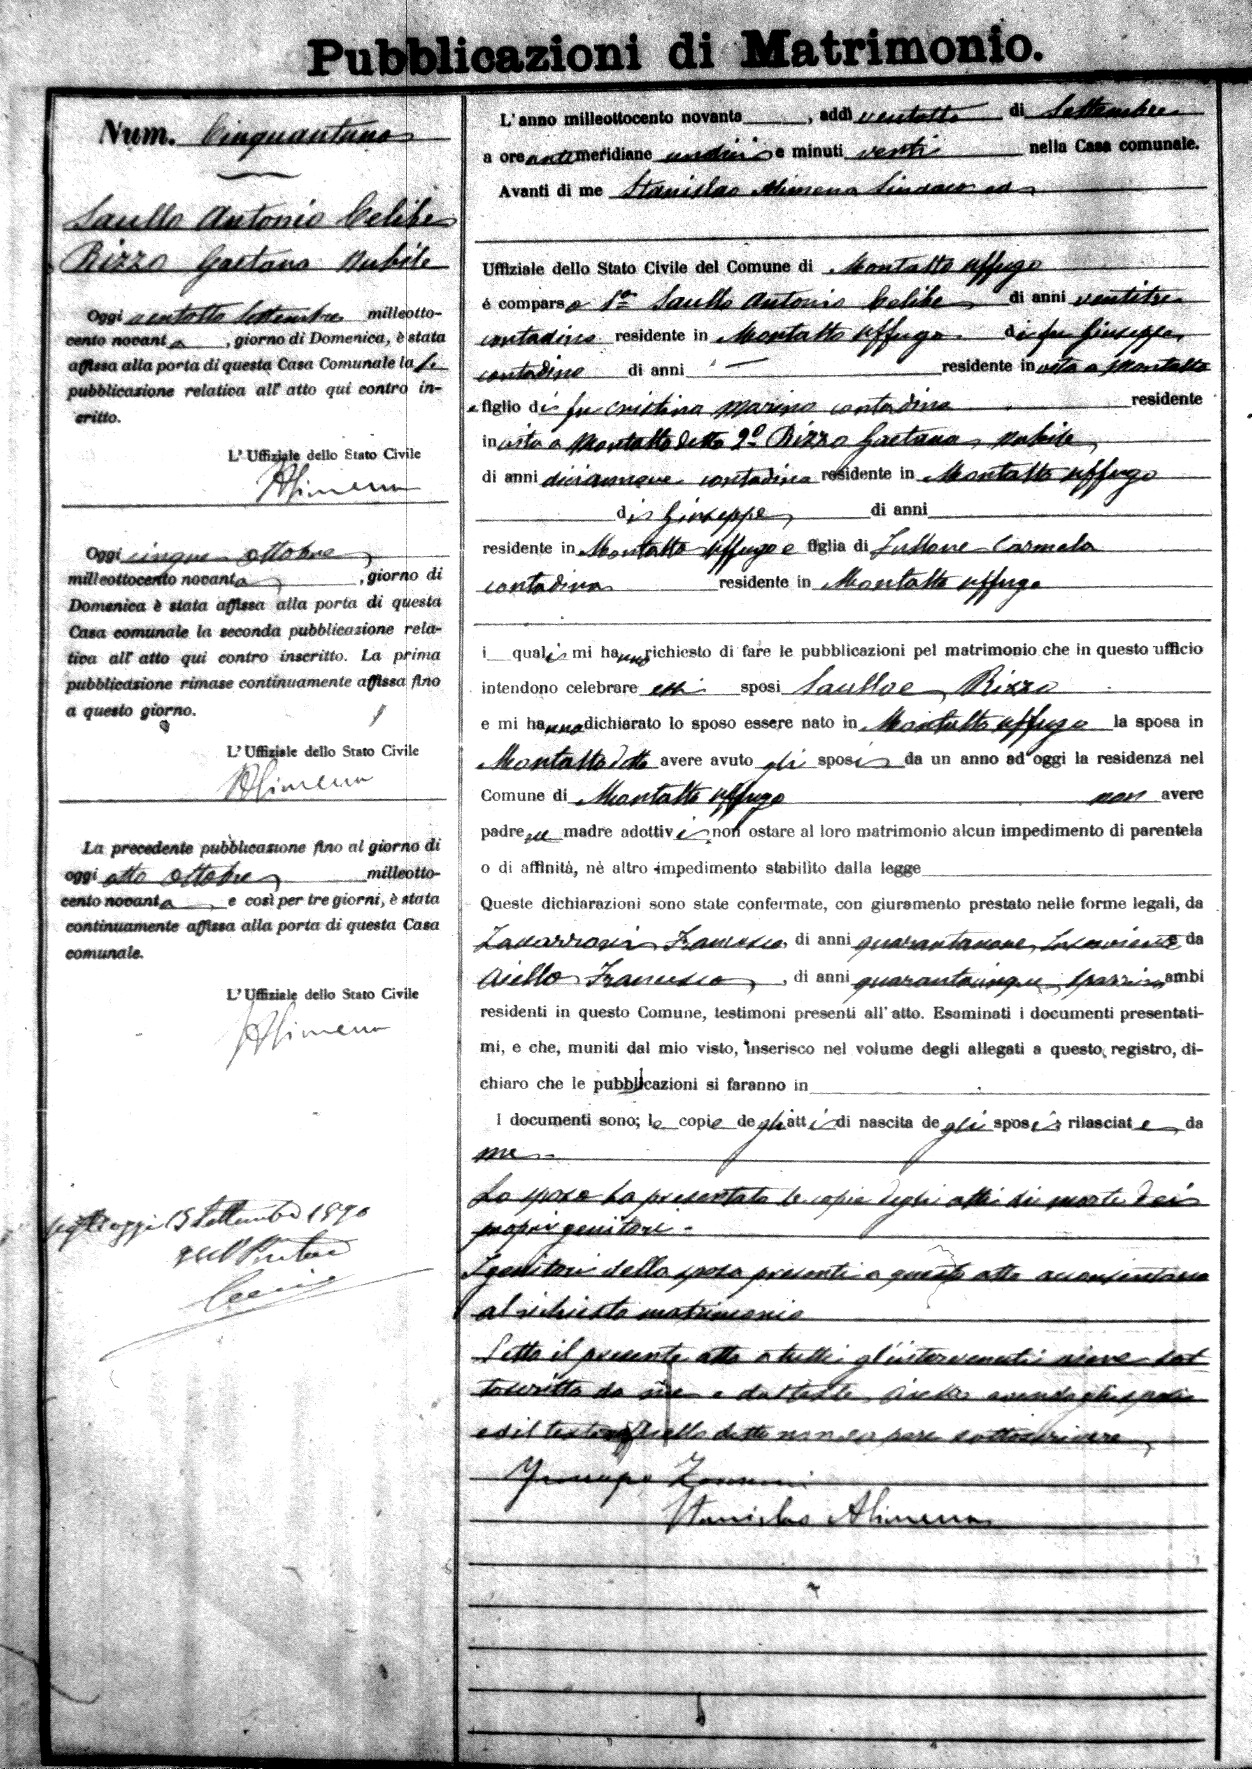 Pubblicazioni di Matrimonio.
Num. Cinquantuno
Saullo Antonio Celibe
Rizzo Gaetana Nubile
Oggi ventotto Settembre milleotto-
cento novanta, giorno di Domenica, è stata
affissa alla porta di questa Casa Comunale la
pubblicazione relativa all' atto qui contro in-
scritto.
L' Uffiziale dello Stato Civile
SAlimena
Oggi cinque Ottobre
milleottocento novanta, giorno di
Domenica è stata affissa alla porta di questa
Casa comunale la seconda pubblicazione rela-
tiva all' atto qui contro inscritto. La prima
pubblicazione rimase continuamente affissa fino
a questo giorno.
L' Uffiziale dello Stato Civile
SAlimena
La precedente pubblicazione fino al giorno di
oggi otto Ottobre milleotto-
cento novanta e così per tre giorni, è stata
continuamente affissa alla porta di questa Casa
comunale.
L' Uffiziale dello Stato Civile
SAlimena
oggi Settembre 1890
L'anno milleottocento novanta, addì ventotto di Settembre
a ore antimeridiane undici e minuti venti nella Casa comunale.
Avanti di me Stanislao Alimena Sindaco ed
Uffiziale dello Stato Civile del Comune di Montalto Uffugo
é comparso 1o Saullo Antonio Celibe di anni ventitre
contadino residente in Montalto Uffugo di fu Giuseppe,
contadino di anni — residente in vita a Montalto
e figlio di fu Cristina Marino contadina residente
in vita a Montalto detto 2o Rizzo Gaetana, nubile,
di anni diciannove contadina residente in Montalto Uffugo
di Giuseppe, di anni
residente in Montalto Uffugo e figlia di Carmela
contadina residente in Montalto Uffugo
i quali mi hanno richiesto di fare le pubblicazioni pel matrimonio che in questo ufficio
intendono celebrare essi sposi Saullo e Rizzo
e mi hanno dichiarato lo sposo essere nato in Montalto Uffugo la sposa in
Montalto detto avere avuto gli sposi da un anno ad oggi la residenza nel
Comune di Montalto Uffugo non avere
padre ne madre adottivi, non ostare al loro matrimonio alcun impedimento di parentela
o di affinità, nè altro impedimento stabilito dalla legge
Queste dichiarazioni sono state confermate, con giuramento prestato nelle forme legali, da
Francesco, di anni quarantanove, e da
Aiello Francesco, di anni quarantacinque, ambi
residenti in questo Comune, testimoni presenti all' atto. Esaminati i documenti presentati-
mi, e che, muniti dal mio visto, inserisco nel volume degli allegati a questo registro, di-
chiaro che le pubblicazioni si faranno in
I documenti sono; le copie degli atti di nascita degli sposi rilasciate da
me.
Lo sposo ha presentato le copie degli atti di morte dei
propri genitori.
I genitori della sposa presenti a questo atto acconsentono
al richiesto matrimonio
Letto il presente atto a tutti gl'intervenuti viene sot
toscritto da me e dal teste, avendo gli sposi
ed il teste Aiello detto non sapere sottoscrivere,
Stanislao Alimena